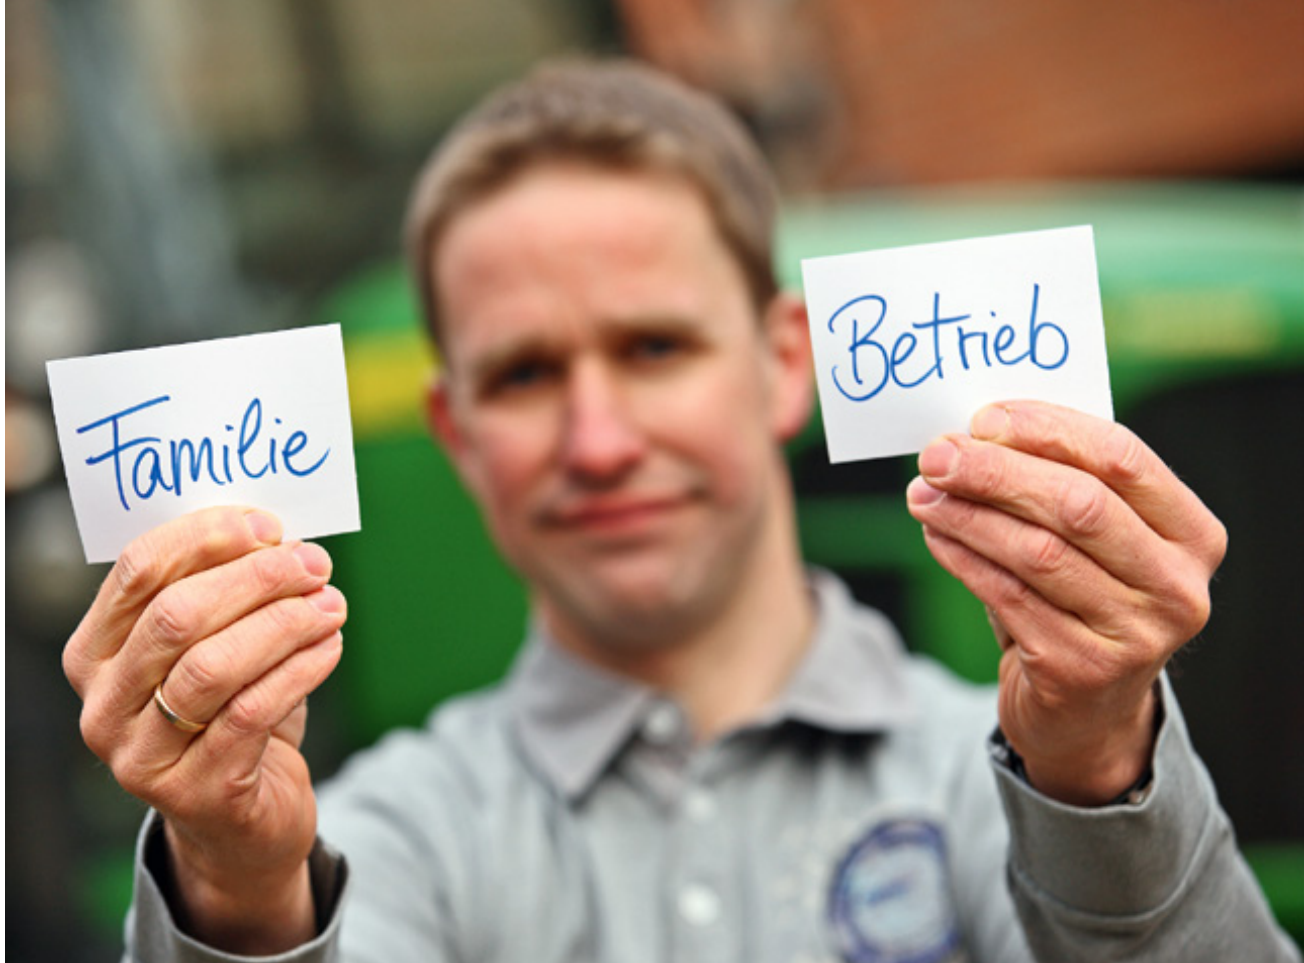 Familie
Betrieb